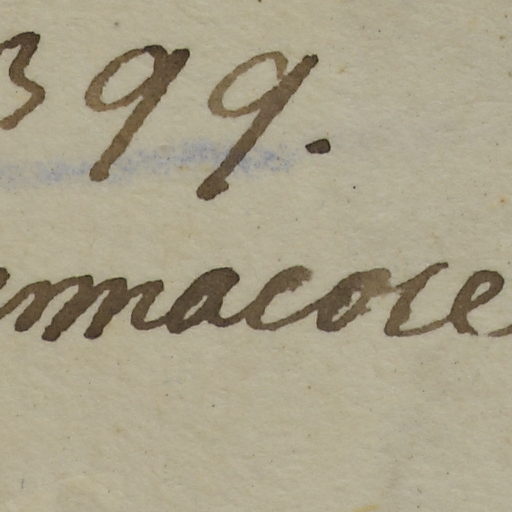 399.
rmacoce